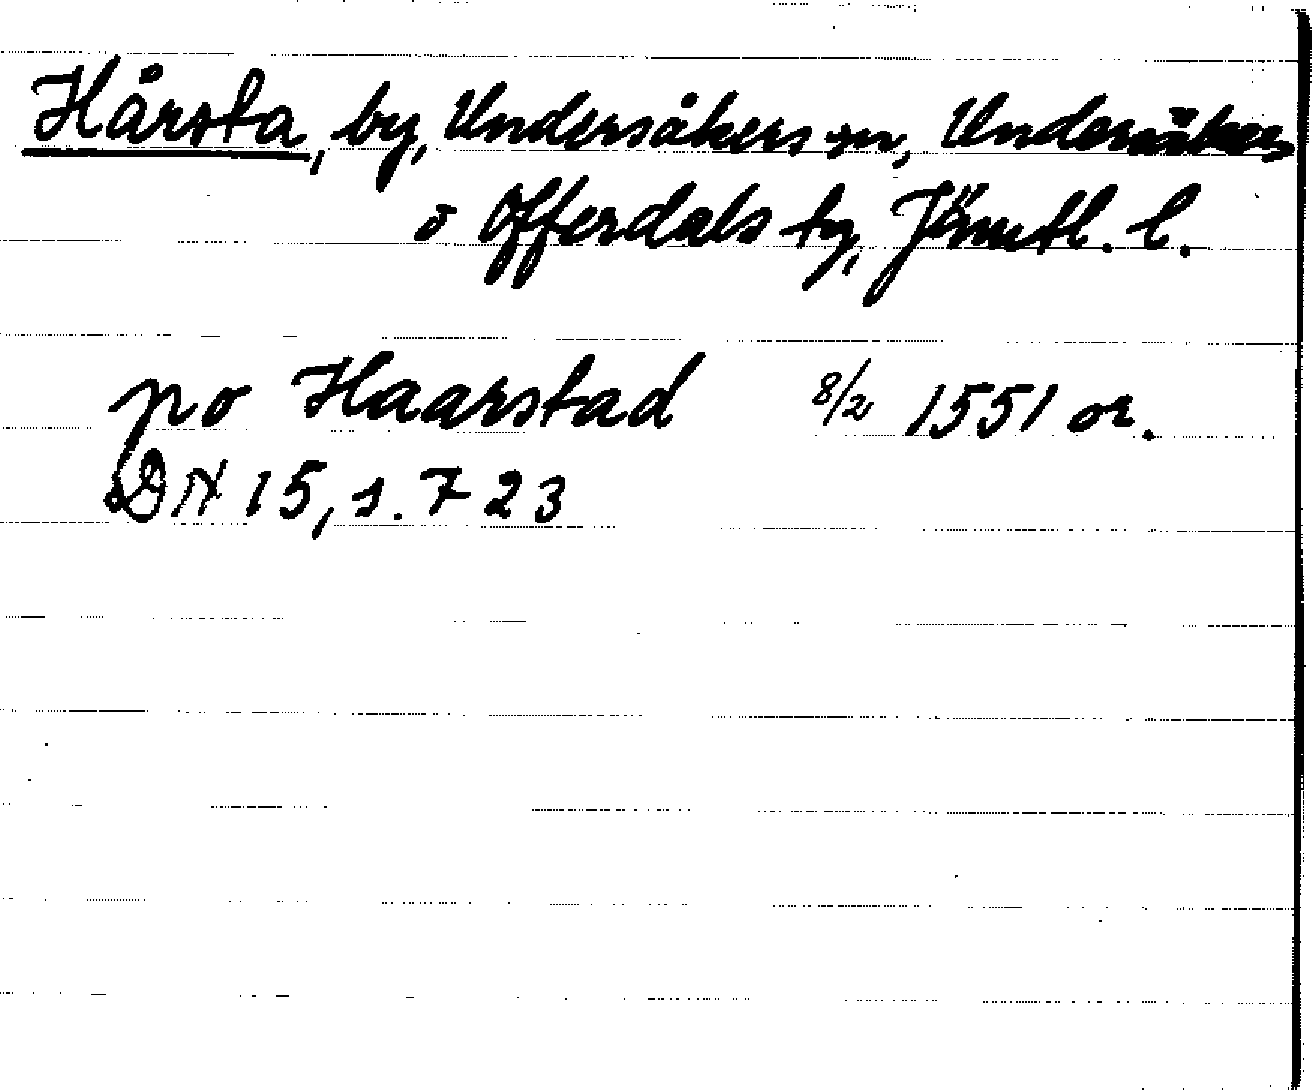 Hårsta, by, Undersåkers sn, Undersåkers
o Offerdals tg, Jämtl. l.
po Haarstad 8/2 1551 or.
DN 15, s. 723